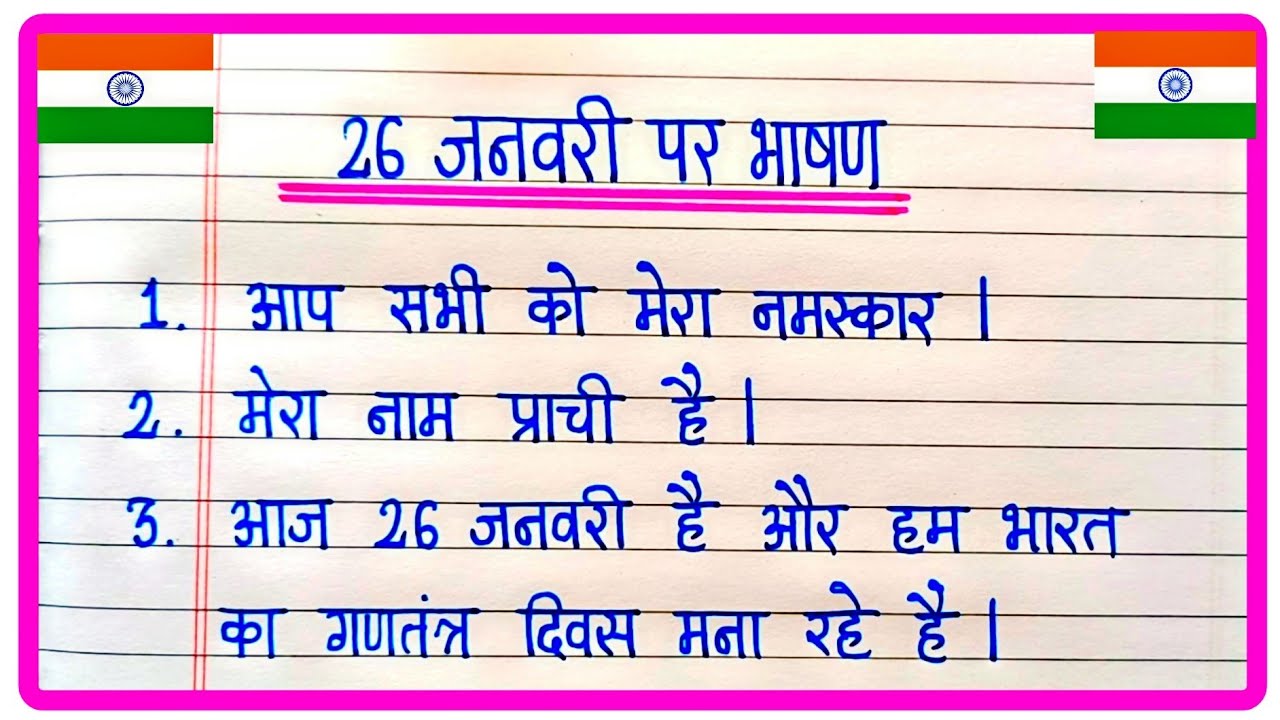 26 जनवरी पर भाषण
1. आप सभी को मेरा नमस्कार |
2. मेरा नाम प्राची है |
3. आज 26 जनवरी है और हम भारत
का गणतंत्र दिवस मना रहे है |